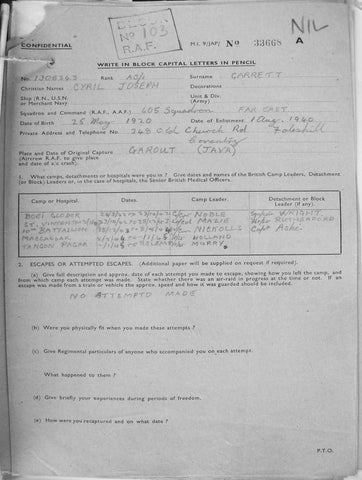 BLOCK
No 103
R.A.F.
NIL
CONFIDENTIAL
M.I. 9/JAP/ No 33668 A
WRITE IN BLOCK CAPITAL LETTERS IN PENCIL
No. 1306363 Rank Surname GARRETT
Christian Names CYRIL JOSEPH Decorations
Ship (R.N., U.S.N. or Merchant Navy Unit & Div. (Army)
Squadron and Command (R.A.F., A.A.F.) 605 Squadron FAR EAST
Date of Birth 25 May 1920 Date of Enlistment 1 Aug. 1940
Private Address and Telephone No. Church Rd Foleshill
Coventry
Place and Date of Original Capture GAROUT (JAVA)
(Aircrew R.A.F. to give place
and date of a/c crash).
1. What camps, detachments or hospitals were you in? Give dates and names of the British Camp Leaders, Detachment
(or Block) Leaders or, in the case of hospitals, the Senior British Medical Officers.
Camp or Hospital. Dates. Camp Leader. Detachment or Block Leader (if any).
BOEI GLODOK NOBLE WRIGHT
ST. VINCENTIUS RUTHERFORD
10th BATTALION NICKOLLS Capt
MACASSAR HOLLAND
TANJON PAGAR
2. ESCAPES OR ATTEMPTED ESCAPES. (Additional paper will be supplied on request if required).
(a) Give full description and approx. date of each attempt you made to escape, showing how you left the camp, and
from which camp each attempt was made. State whether there was an air-raid in progress at the time or not. If an
escape was made from a train or vehicle the approx. speed and how it was guarded should be included.
NO ATTEMPTD MADE
(b) Were you physically fit when you made these attempts?
(c) Give Regimental particulars of anyone who accompanied you on each attempt.
What happened to them?
(d) Give briefly your experiences during periods of freedom.
(e) How were you recaptured and on what date?
P.T.O.